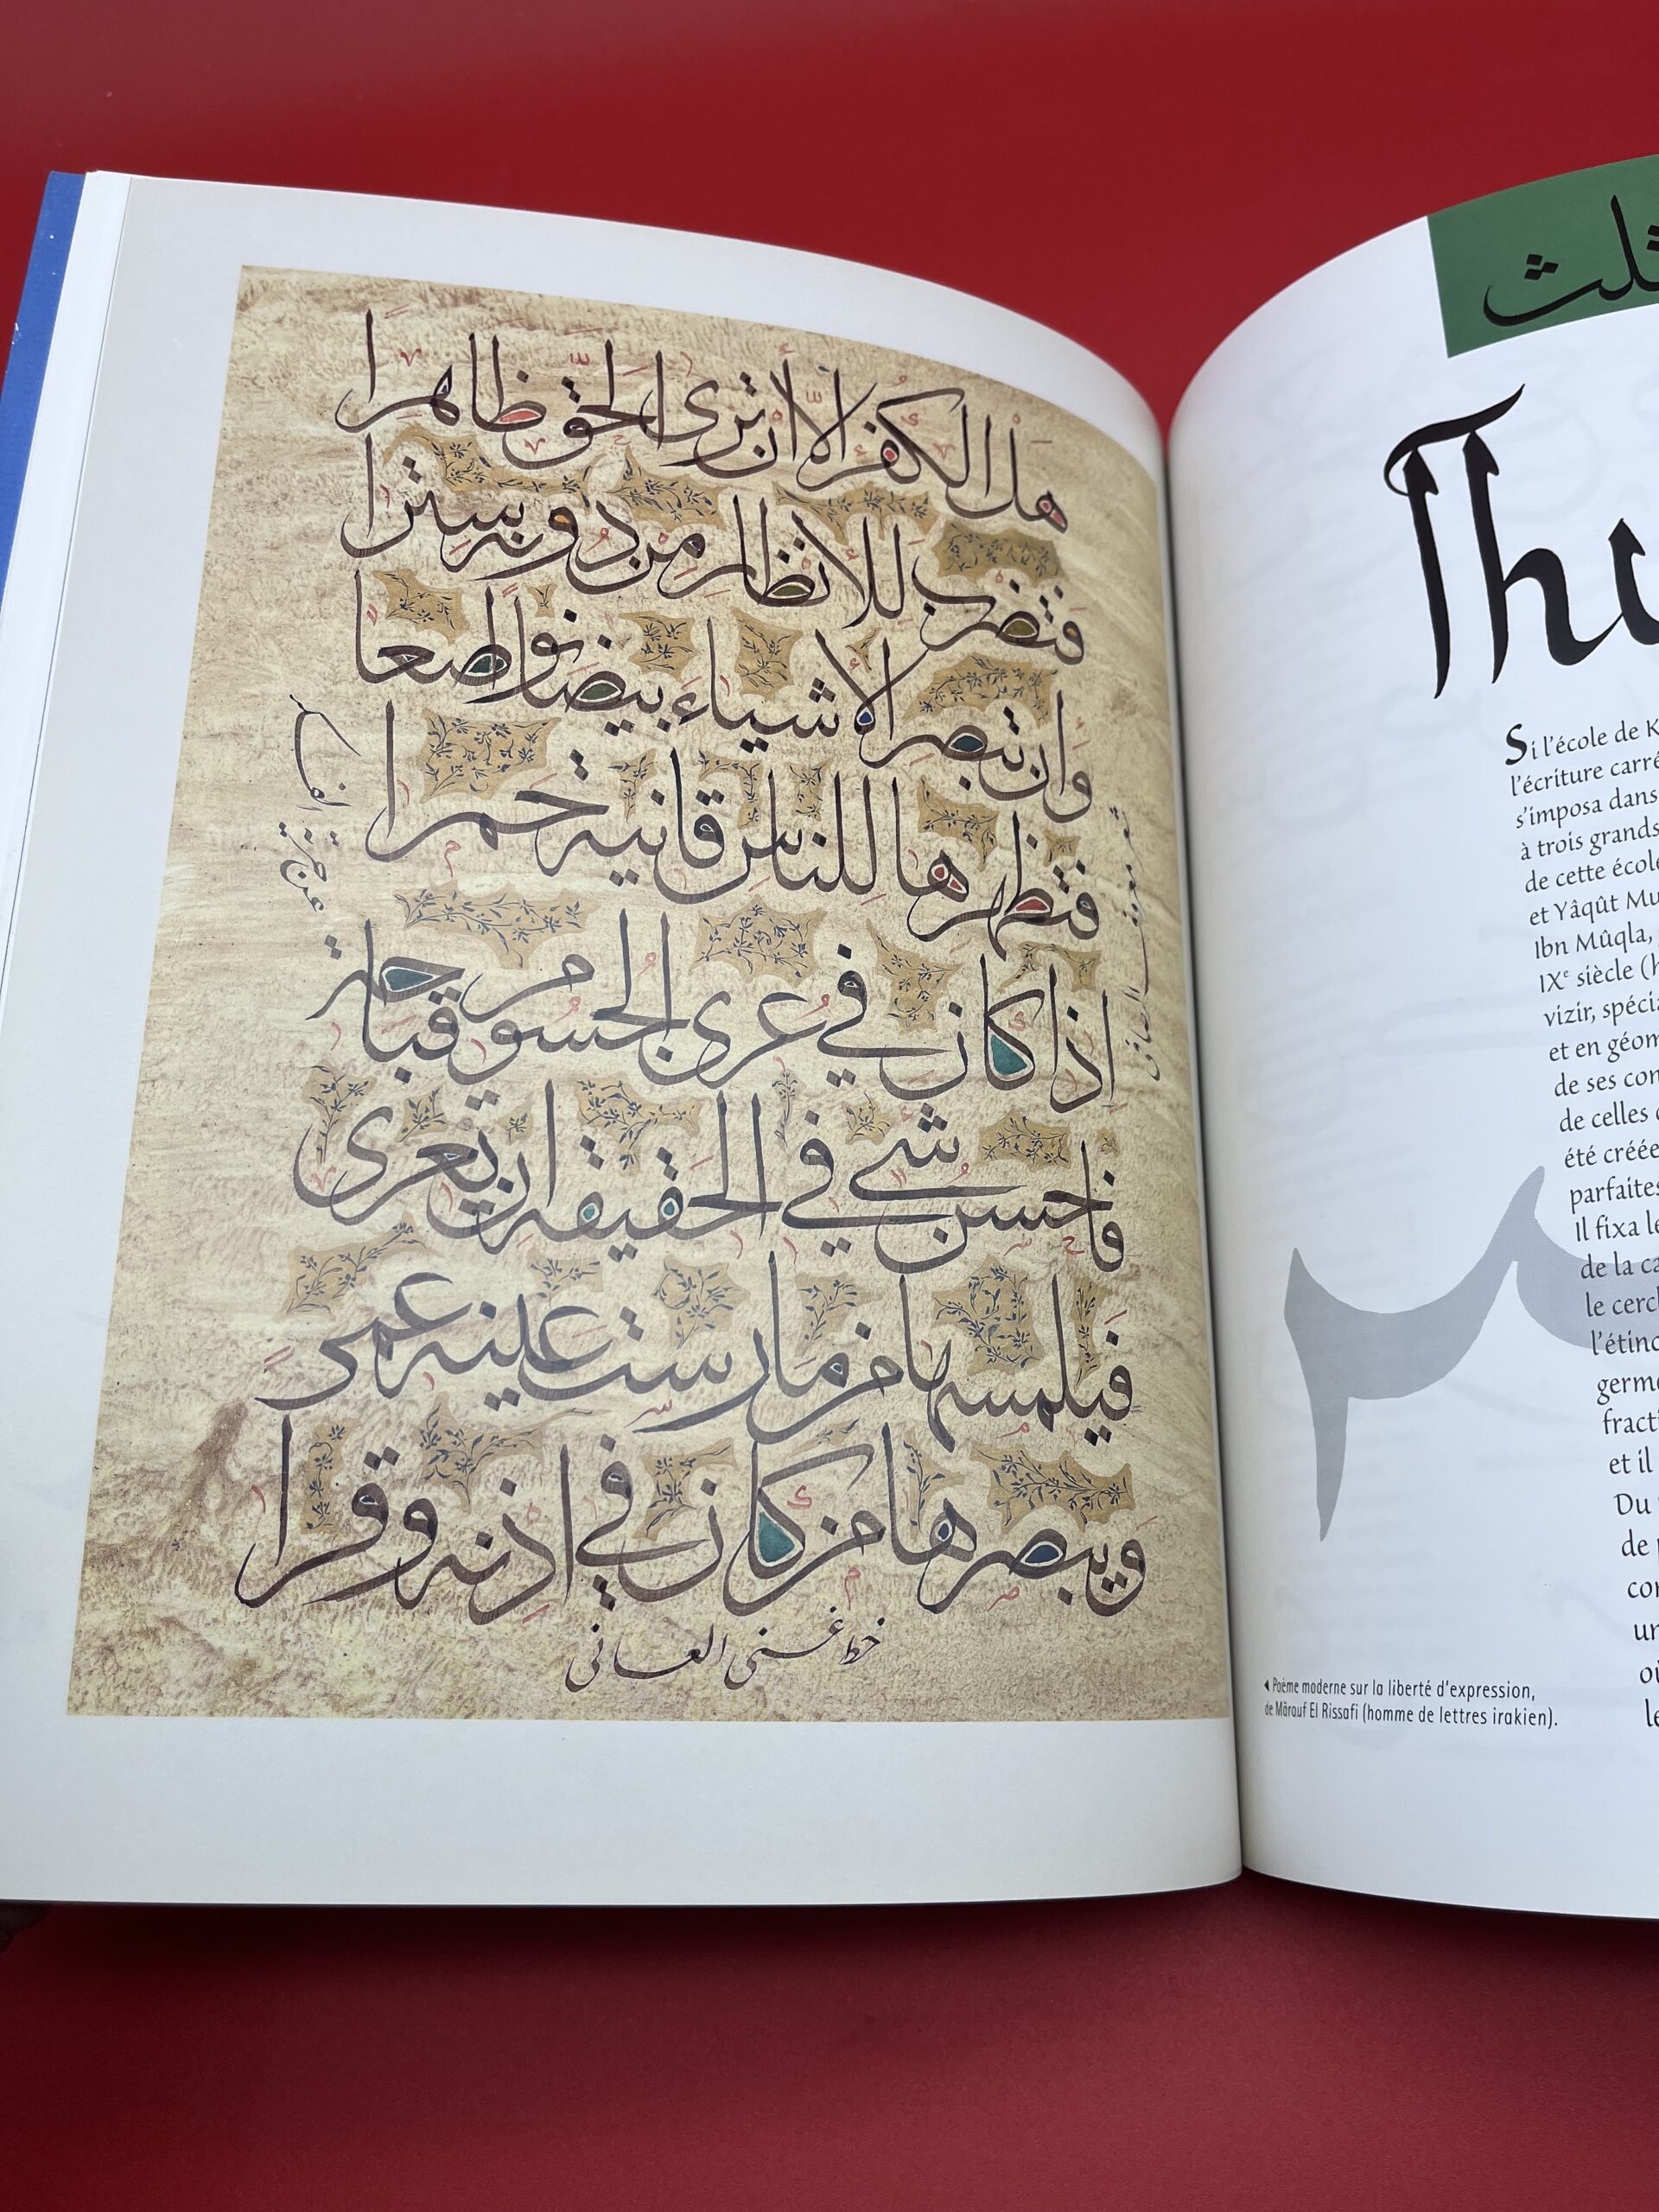 هل الكفر إلا أن ترى الحق ظاهرا
فتضرب للأنظار من دونه سترا
وان تبصر الأشياء بيضا نواصعا
فتظهرها للناس قانية حمرا
اذا كان في عري الجسوم قباحة
فاحسن شيء في الحقيقة ان يعرى
فيلمسها من مارست عينه عمى
ويبصرها من كان في اذنه وقرا
خط غني العاني
◄ Poème moderne sur la liberté d'expression,
de Mârouf El Rissafi (homme de lettres irakien).
ثلث
Thu
Si l'école de K
l'écriture carré
s'imposa dans
à trois grands
de cette école
et Yâqût Mu
Ibn Mûqla,
IXe siècle (h
vizir, spécia
et en géom
de ses con
de celles
été créée
parfaites
Il fixa le
de la ca
le cercl
l'étinc
germe
fracti
et il
Du
de
cor
un
où
le